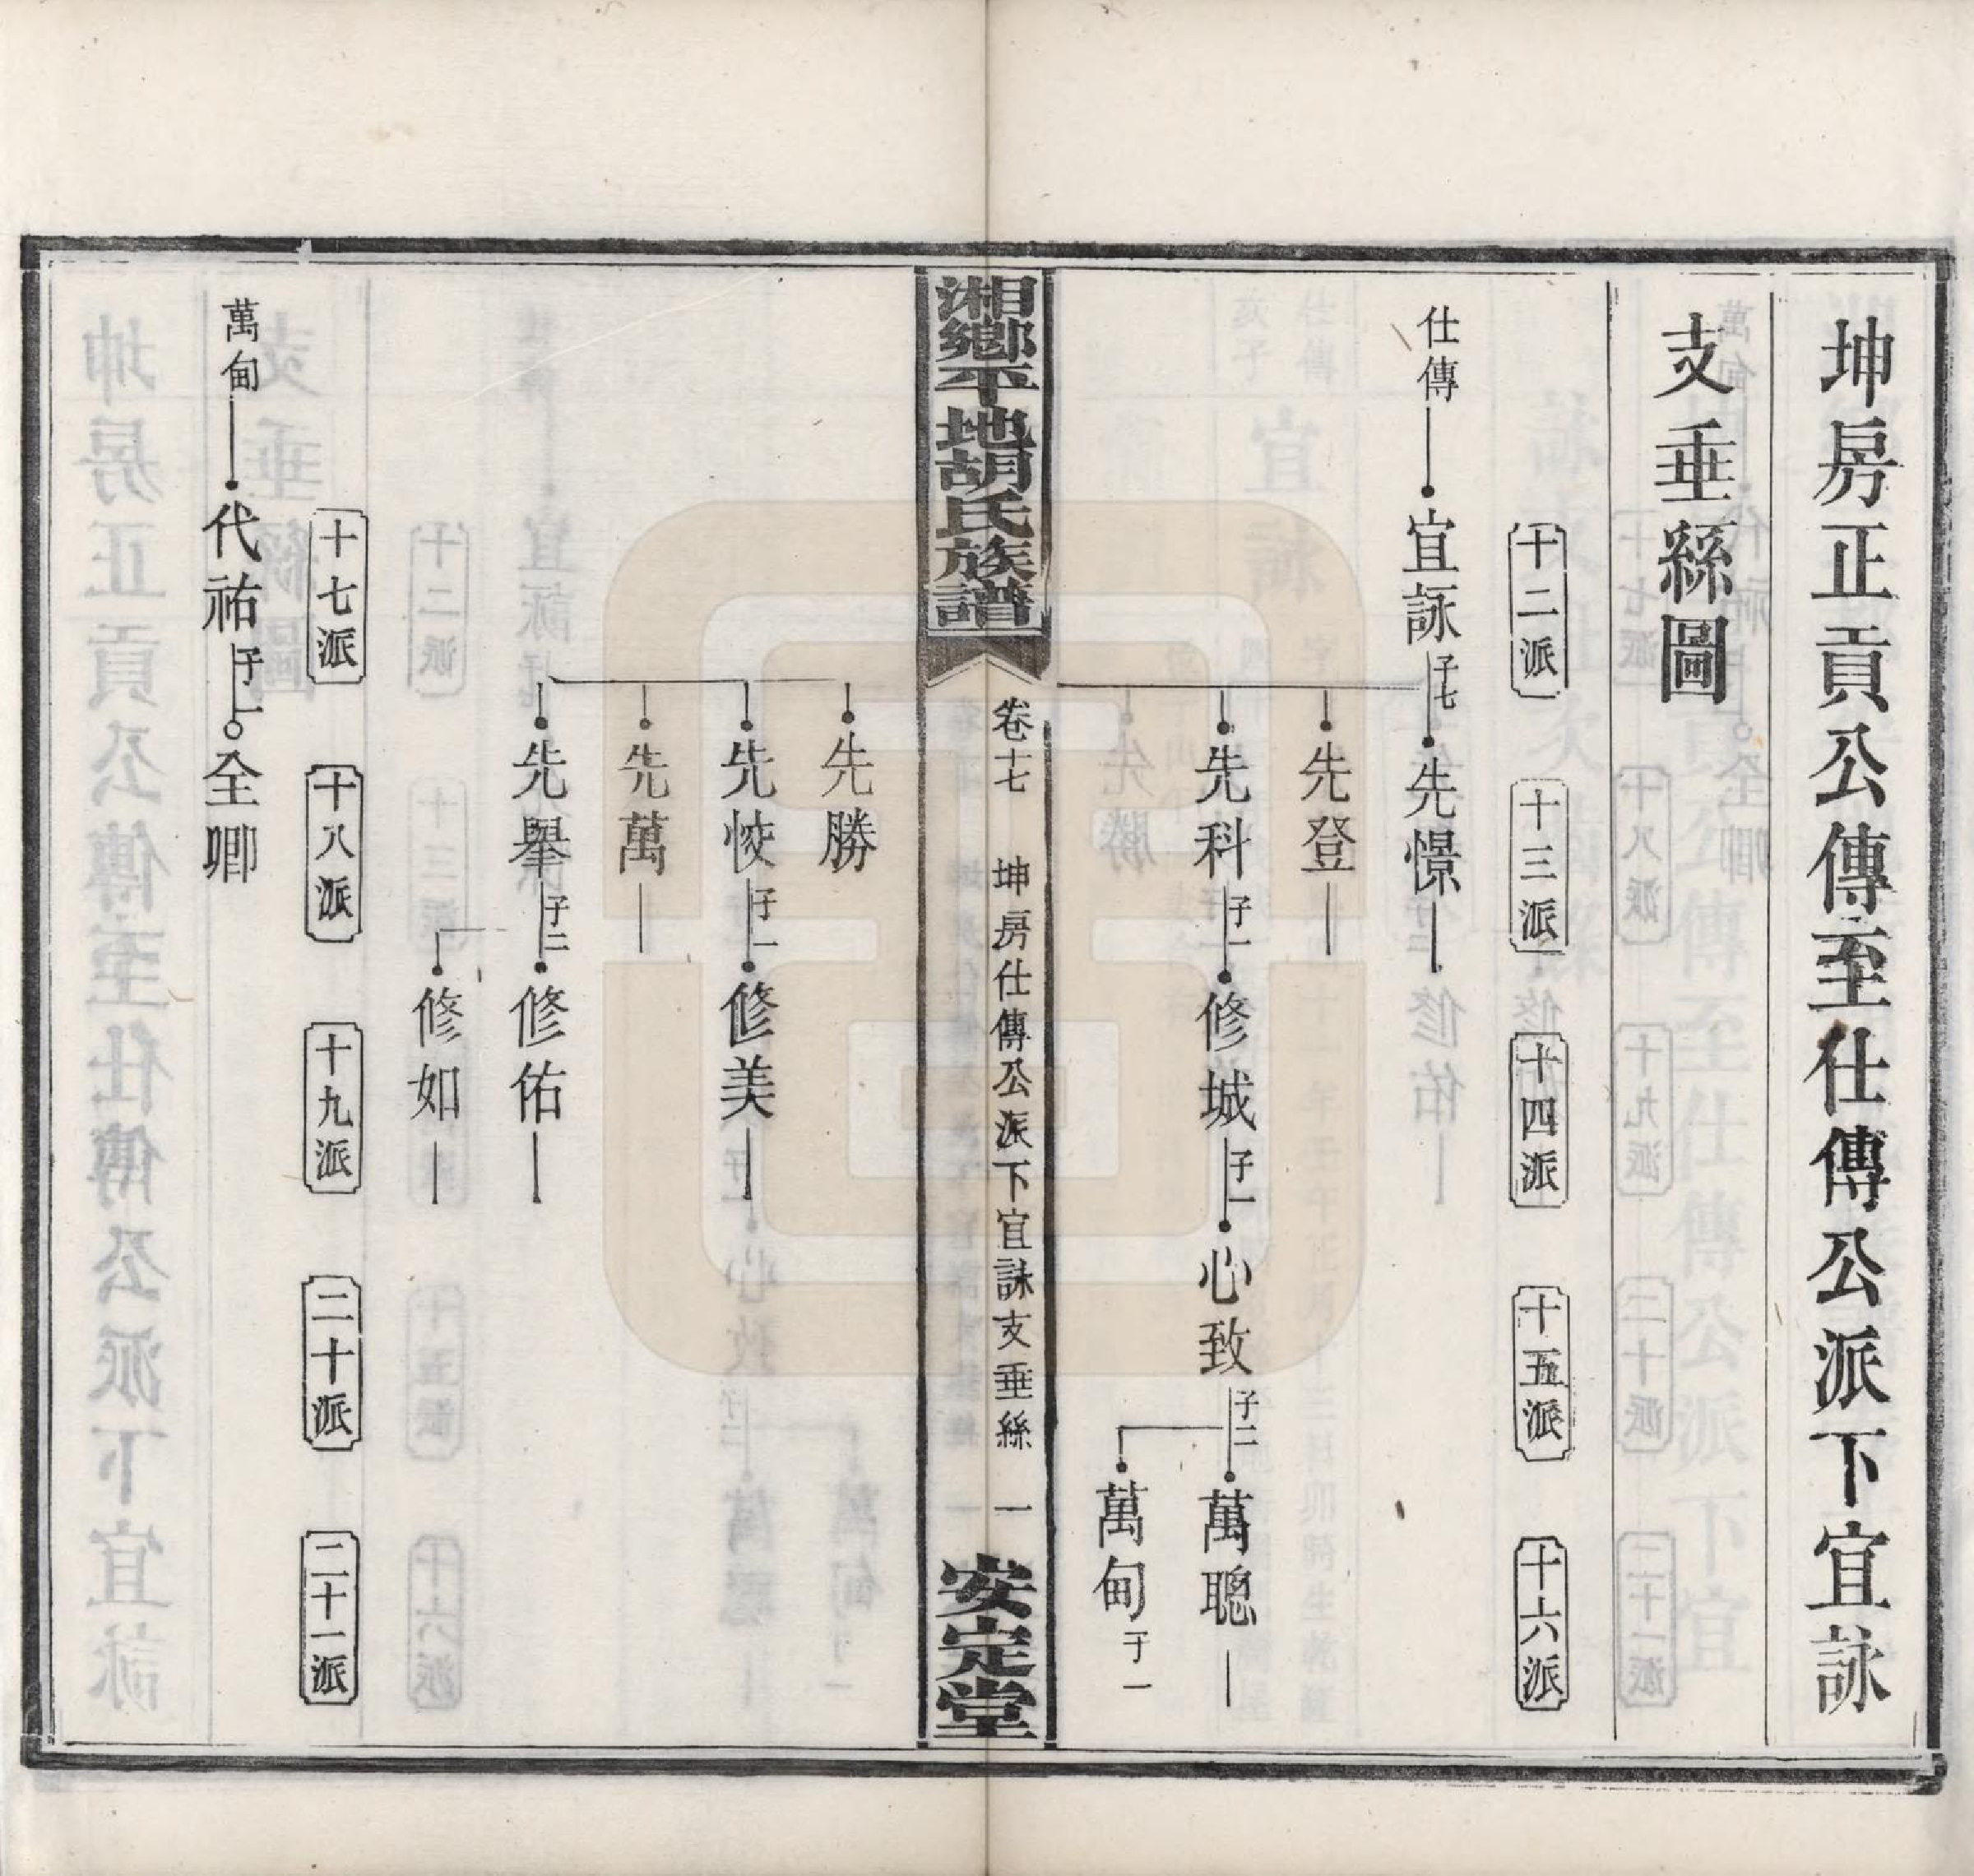 坤房正貢公傳至仕傳公派下宜詠
支垂絲圖
十二派
十三派
十四派
十五派
十六派
仕傳
宜詠 子七
先憬
先登
先科 子一
修城 子一
心致 子二
萬聰
萬甸 子一
湘鄉平地胡氏族譜
卷十七
坤房仕傳公派下宜詠支垂絲
一
安定堂
先勝
先恔 子一
修美
先萬
先舉 子二
修佑
修如
十七派
十八派
十九派
二十派
二十一派
萬甸
代祐 子一
全卿